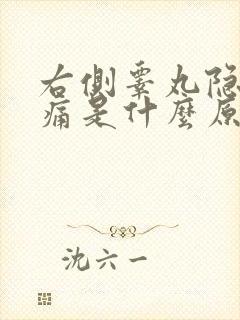 右侧睾丸隐
痛是什麼原
沈六一